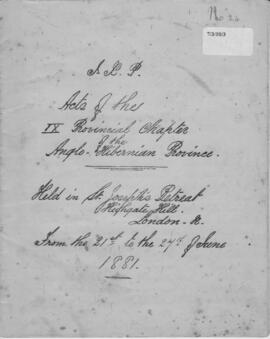 No 26
J. X. P.
Acts of the
IX Provincial Chapter
of the
Anglo-Hibernian Province.
Held in St. Joseph's Retreat
Highgate Hill.
London. N.
From the 21st to the 27th of June
1881.